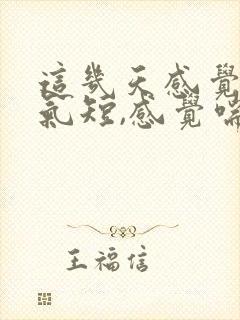 這幾天感覺
氣短,感覺喘
王福信